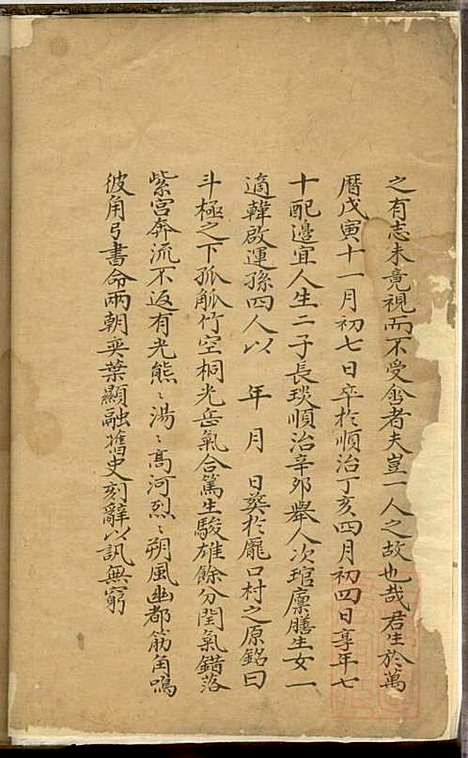 之有志未竟視而不受含者夫豈一人之故也哉君生於萬
曆戊寅十一月初七日卒於順治丁亥四月初四日享年七
十配邊宜人生二子長琰順治辛卯舉人次琯廩膳生女一
適韓啟運孫四人以　年　月　日葬於龐口村之原銘曰
斗極之下孤觚竹空桐光岳氣合篤生駿雄餘分閏氣錯落
紫宮奔流不返有光熊〻湯〻高河烈〻朔風幽都筋角鳴
彼角弓書命兩朝奕葉顯融舊史刻辭以訊無窮